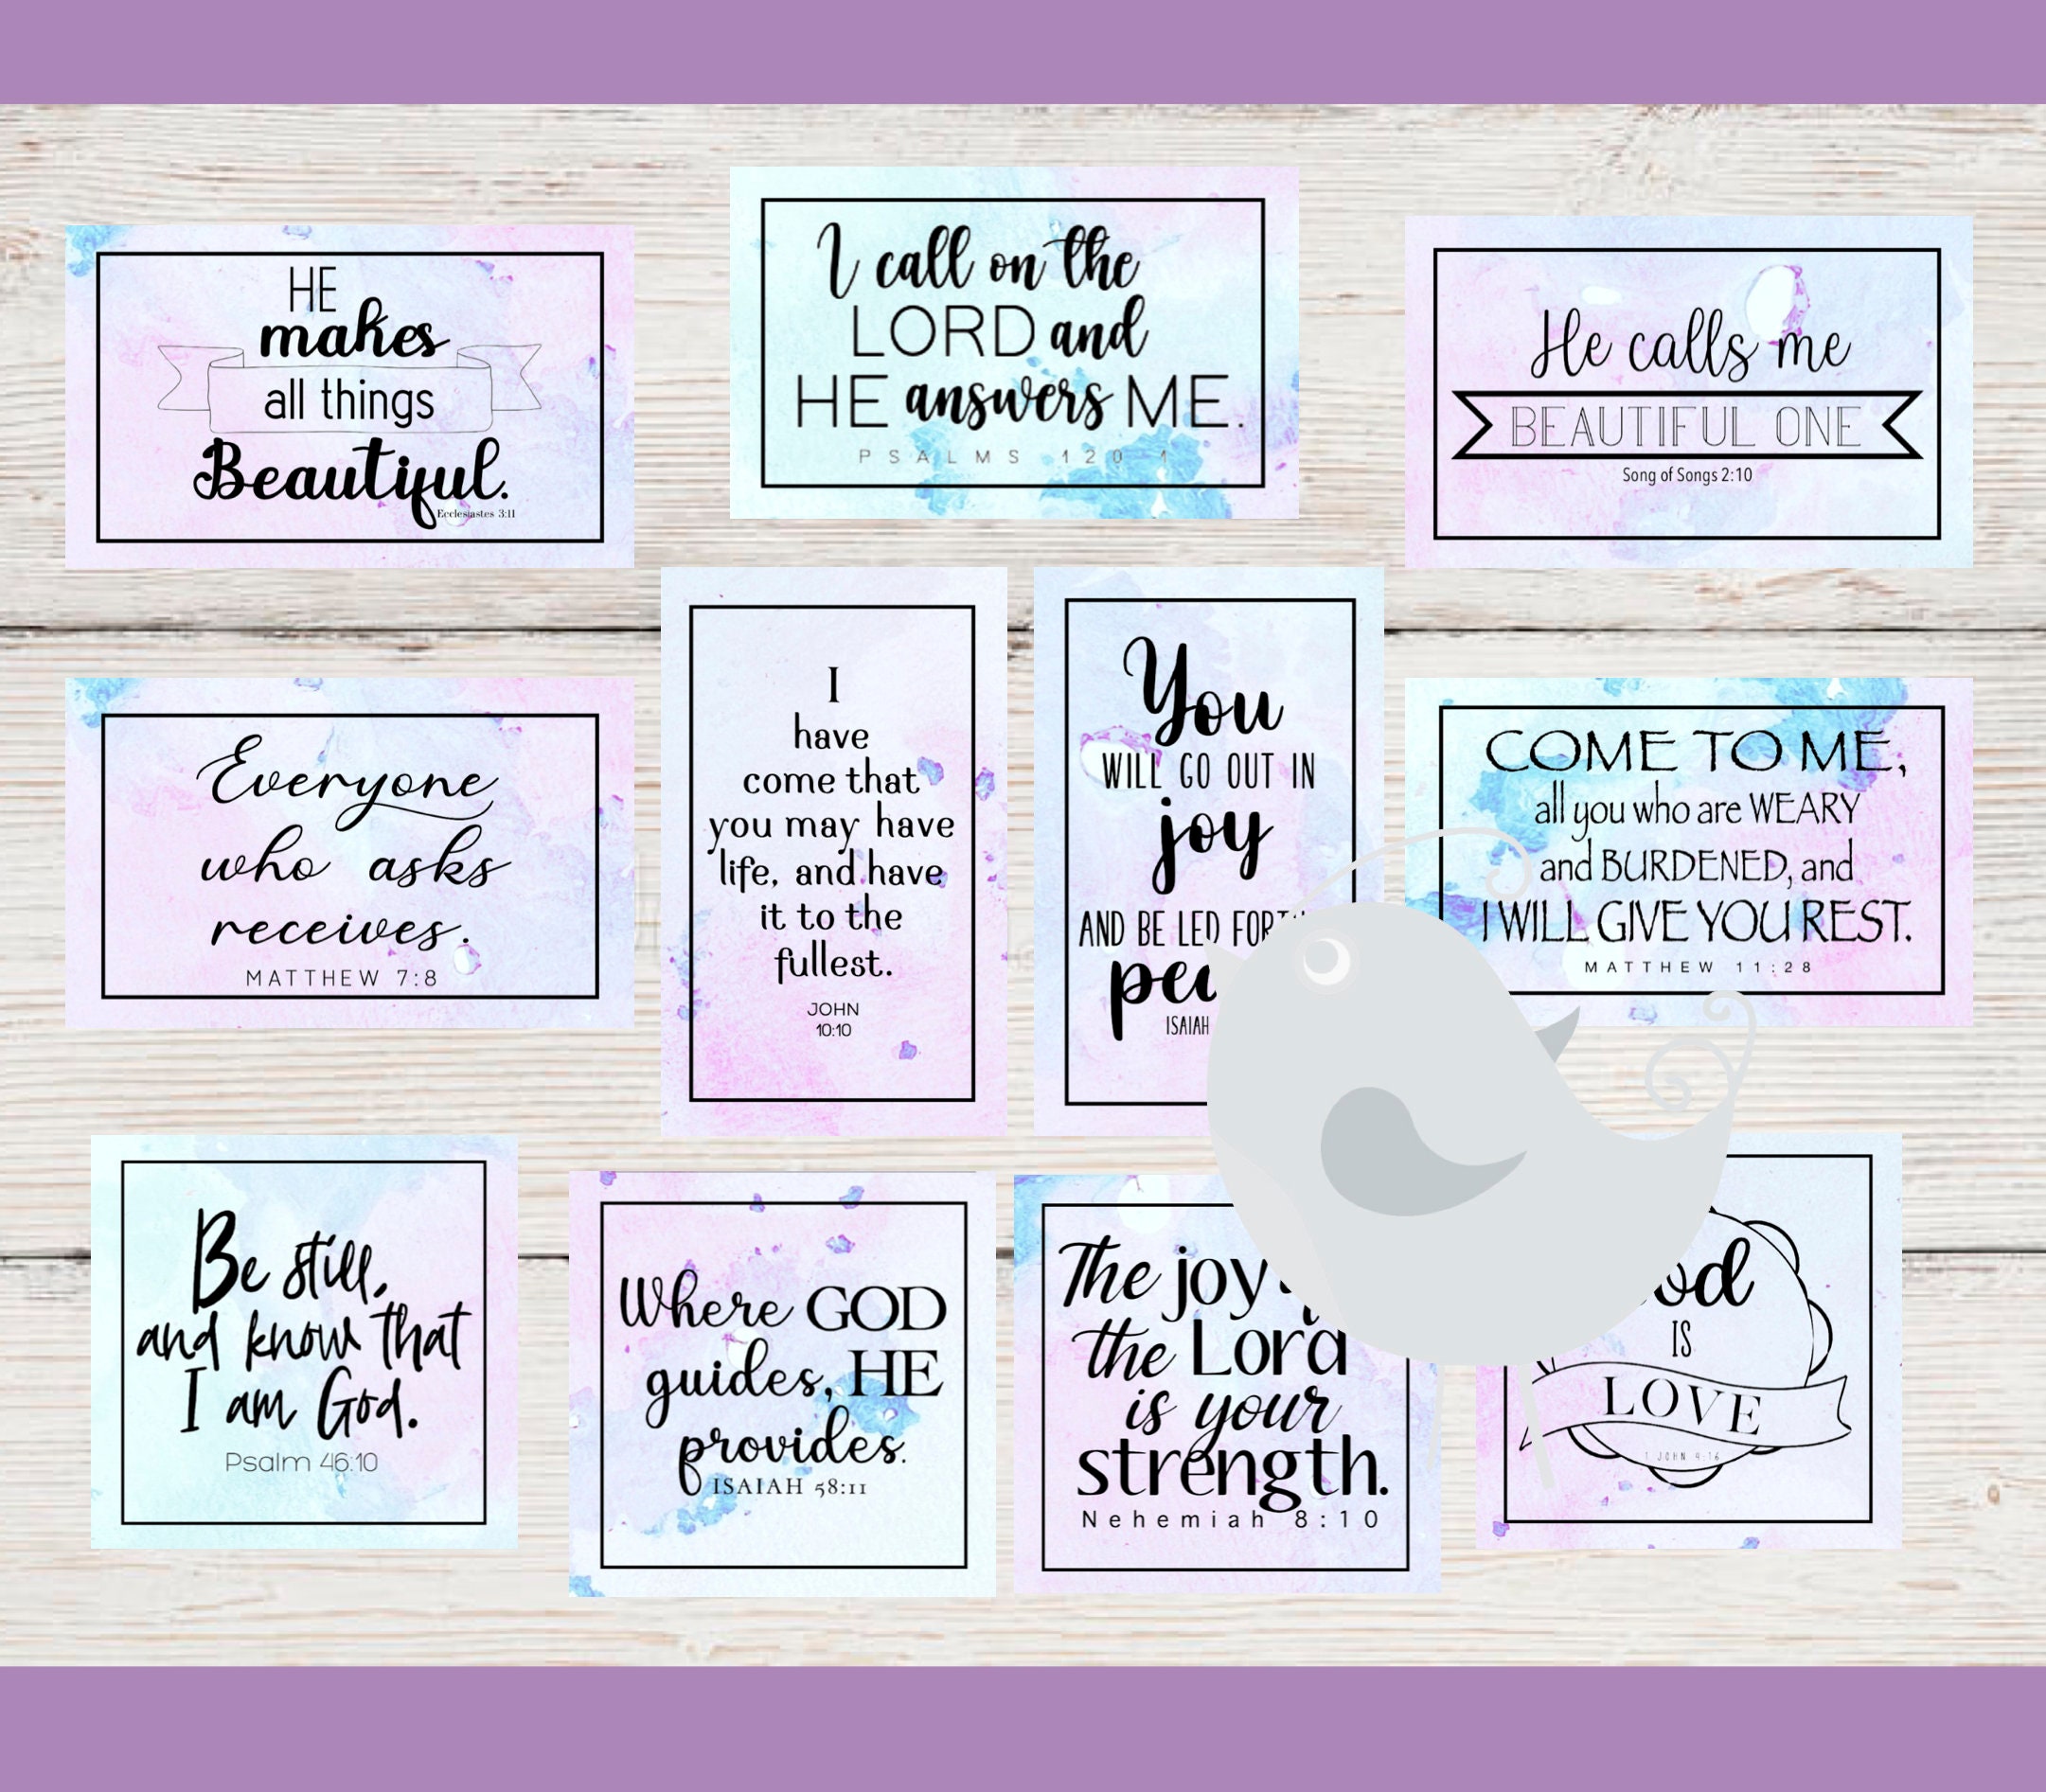 HE
makes
all things
Beautiful.
Ecclesiastes 3:11
I call on the
LORD and
HE answers ME.
PSALMS 120 1
He calls me
BEAUTIFUL ONE
Song of Songs 2:10
Everyone
who asks
receives.
MATTHEW 7:8
I
have
come that
you may have
life, and have
it to the
fullest.
JOHN
10:10
You
WILL GO OUT IN
joy
AND BE LED
ISAIAH
COME TO ME,
all you who are WEARY
and BURDENED, and
I WILL GIVE YOU REST.
MATTHEW 11:28
Be still,
and know that
I am God.
Psalm 46:10
Where GOD
guides, HE
provides.
ISAIAH 58:11
The joy
the Lord
is your
strength.
Nehemiah 8:10
IS
LOVE
1 JOHN 4:16